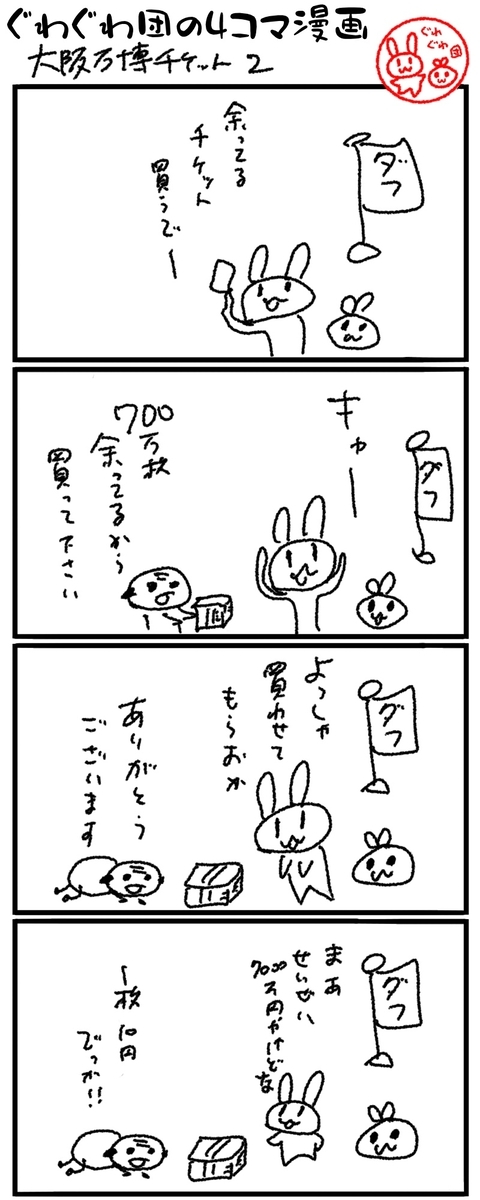 ぐわぐわ団の4コマ漫画
大阪万博チケット 2
ぐわ
ぐわ
団
ダフ
余ってる
チケット
買うでー
ダフ
キャー
700
万枚
余ってるから
買って下さい
ダフ
よっしゃ
買わせて
もらおか
ありがとう
ございます
ダフ
まあ
せいぜい
7000万円やけどな
1枚10円
でっか!!